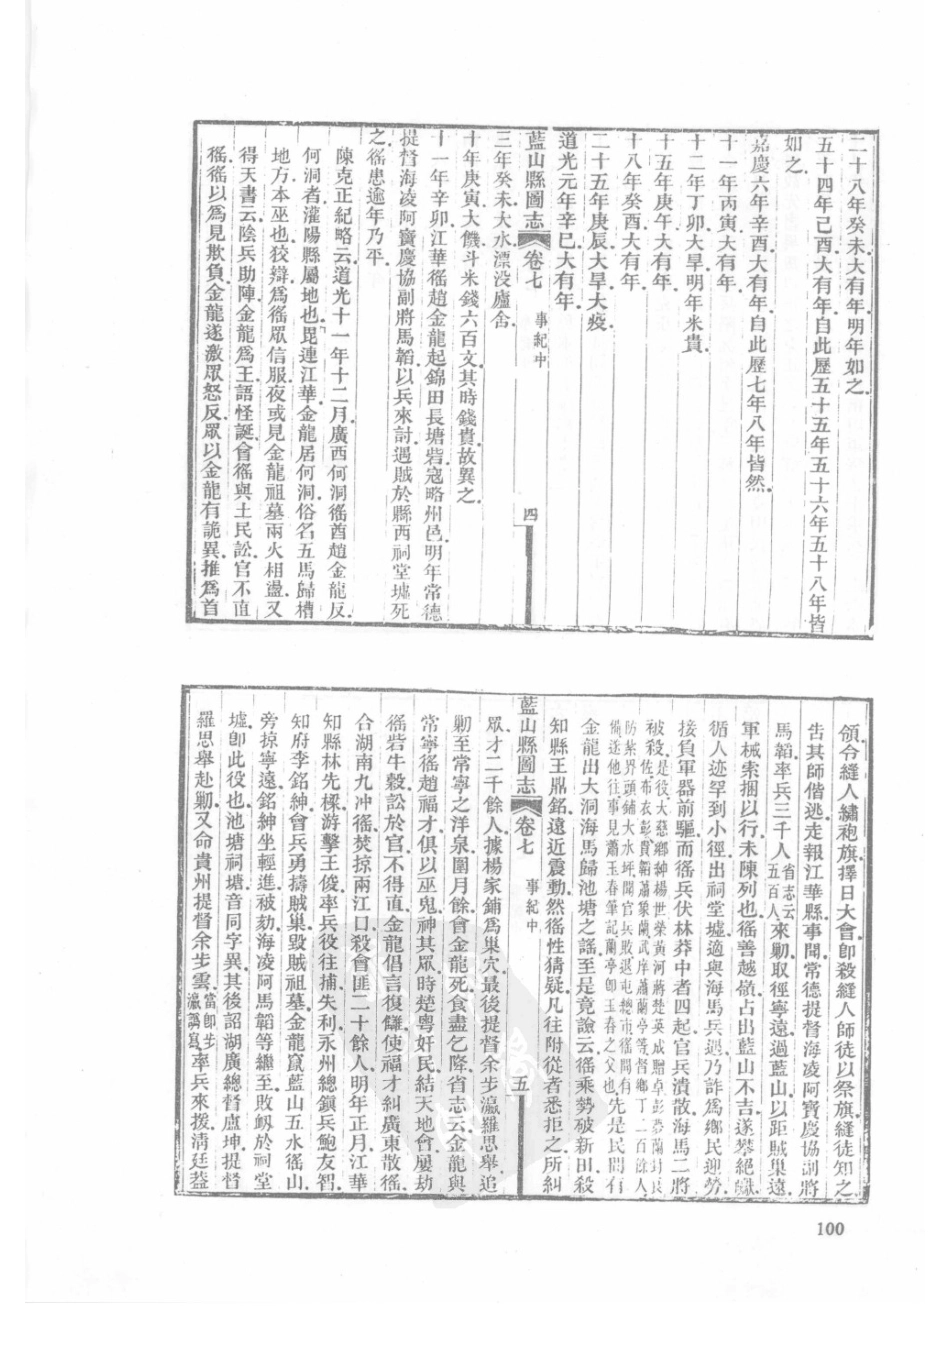 二十八年癸未大有年.明年如之.
五十四年己酉大有年.自此歷五十五年五十六年五十八年皆
如之.
嘉慶六年辛酉大有年.自此歷七年八年皆然.
十一年丙寅大有年.
十二年丁卯大旱.明年米貴.
十五年庚午大有年.
十八年癸酉大有年.
二十五年庚辰大旱大疫.
道光元年辛巳大有年.
藍山縣圖志 卷七 事紀中 四
三年癸未大水.漂沒廬舍.
十年庚寅大饑.斗米錢六百文.其時錢貴.故異之.
十一年辛卯江華徭趙金龍起錦田長塘砦.寇略州邑.明年常德
提督海凌阿寶慶協副將馬韜以兵來討.遇賊於縣西祠堂墟.死
之.徭患逾年乃平.
陳克正紀略云.道光十一年十二月.廣西何洞徭酋趙金龍反.
何洞者灌陽縣屬地也.毘連江華.金龍居何洞.俗名五馬歸槽
地方.本巫也.狡辯爲徭眾信服.夜或見金龍祖墓兩火相盪.又
得天書云.陰兵助陣.金龍爲王.語怪誕.會徭與土民訟.官不直
徭.徭以爲見欺負.金龍遂激眾怒反.眾以金龍有詭異.推爲首
領.令縫人繡袍旗.擇日大會.即殺縫人師徒以祭旗.縫徒知之.
告其師偕逃.走報江華縣.事聞.常德提督海凌阿寶慶協副將
馬韜率兵三千人省志云五百人來勦.取徑寧遠.過藍山.以距賊巢遠.
軍械索捆以行.未陳列也.徭善越嶺.占出藍山不吉.遂攀絕巘.
循人迹罕到小徑.出祠堂墟.適與海馬兵遇.乃詐爲鄉民迎勞.
接負軍器前驅.而徭兵伏林莽中者四起.官兵潰散.海馬二將
被殺.
金龍出大洞.海馬歸池塘之謠.至是竟讖云.徭乘勢破新田.殺
知縣王鼎銘.遠近震動.然徭性猜疑.凡往附從者悉拒之.所糾
藍山縣圖志 卷七 事紀中 五
眾才二千餘人.據楊家鋪爲巢穴.最後提督余步瀛羅思舉.追
勦至常寧之洋泉.圍月餘.會金龍死.食盡乞降.省志云.金龍與
常寧徭趙福才.俱以巫鬼神其眾.時楚粵奸民結天地會.屢劫
徭砦牛穀.訟於官不得直.金龍倡言復讎.使福才糾廣東散徭.
合湖南九冲徭.焚掠兩江口.殺會匪二十餘人.明年正月.江華
知縣林先樑.游擊王俊.率兵役往捕.失利.永州總鎮兵鮑友智.
知府李銘紳.會兵勇擣賊巢.毀賊祖墓.金龍竄藍山五水徭山.
旁掠寧遠.銘紳坐輕進被劾.海凌阿馬韜等繼至.敗衂於祠堂
墟.即此役也.池塘祠塘.音同字異.其後詔湖廣總督盧坤.提督
羅思舉赴勦.又命貴州提督余步雲.當即步瀛譌寫率兵來援.清廷葢
100